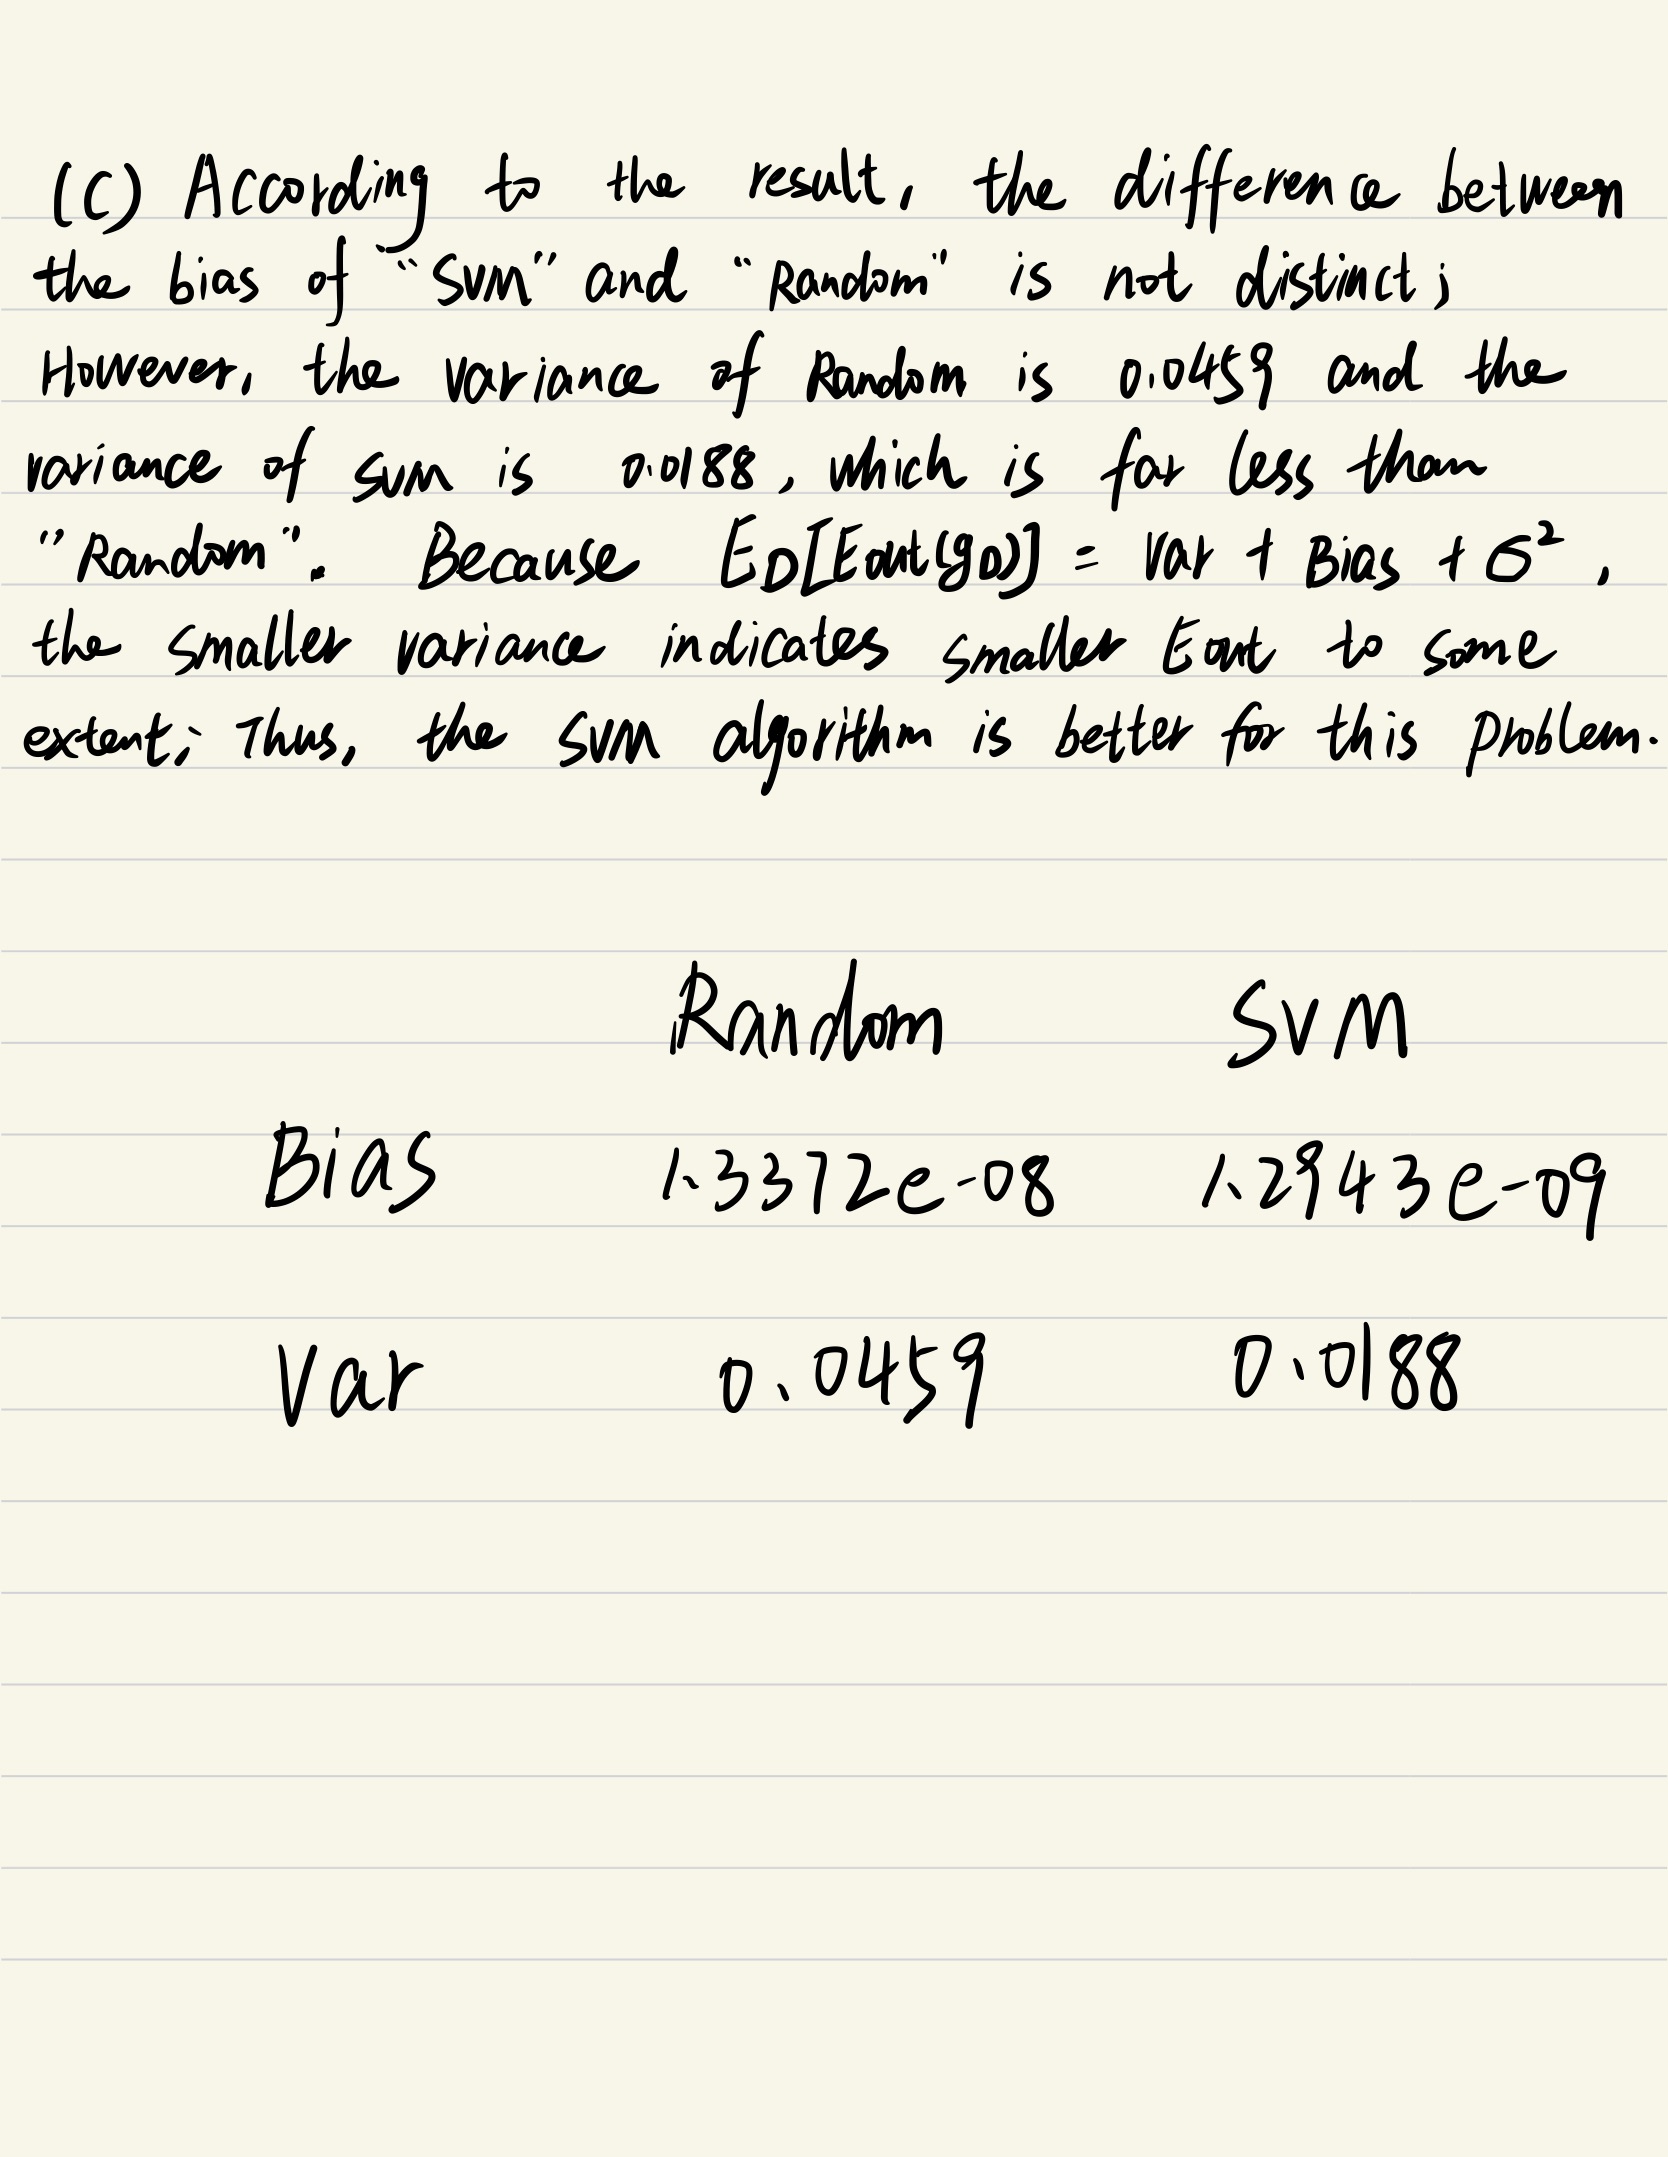 (C) According to the result, the difference between
the bias of "SVM" and "Random" is not distinct;
However, the variance of Random is 0.0459 and the
variance of SVM is 0.0188, which is far less than
"Random". Because E_D[Eout(g_D)] = Var + Bias + σ²,
the smaller variance indicates smaller Eout to some
extent; Thus, the SVM algorithm is better for this problem.
Random SVM
Bias 1.3372e-08 1.2943e-09
Var 0.0459 0.0188